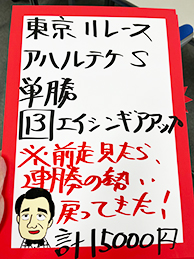 東京11レース
アハルテケS
単勝
13エイシンギアアップ
※前走見たら、
連勝の勢い
戻ってきた!
計15000円